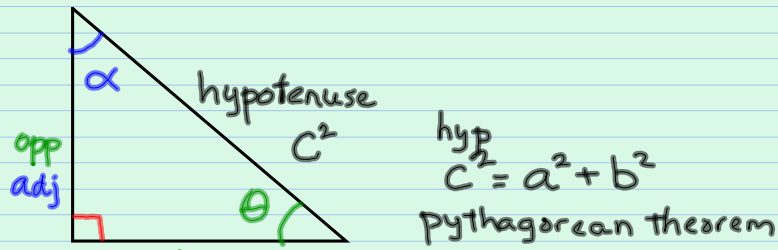 α
hypotenuse
C²
opp
adj
θ
hyp
c² = a² + b²
pythagorean theorem